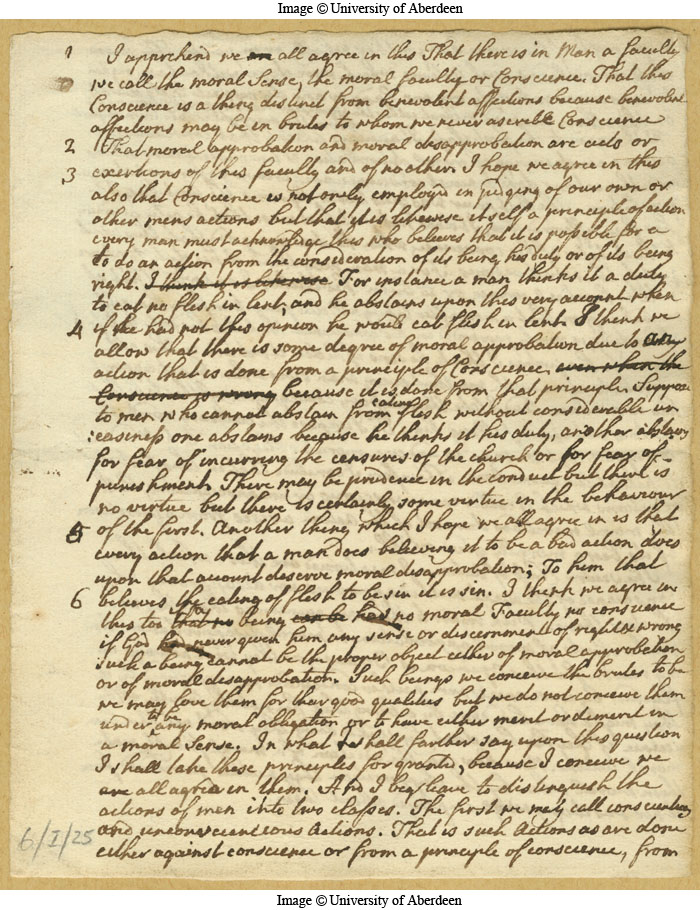 Image © University of Aberdeen
1 I apprehend we are all agree in this That there is in Man a faculty
we call the moral Sense, the moral faculty or Conscience. That this
Conscience is a thing distinct from benevolent affections because benevolent
affections may be in brutes to whom we never ascribe Conscience
2 That moral approbation and moral disapprobation are acts or
3 exertions of this faculty and of no other. I hope we agree in this
also that Conscience is not onely employd in judging of our own or
other mens actions but that it is likewise it self a principle of action
every man must acknowledge this who believes that it is possible for a
to do an action from the consideration of its being his duty or of its being
right. I think it is likewise For instance a man thinks it a duty
to eat no flesh in lent, and he abstains upon this very account when
4 if he had not this opinion he would eat flesh in lent. I think we
allow that there is some degree of moral approbation due to any
action that is done from a principle of Conscience, even when the
Conscience is wrong because it is done from that principle. Suppose
to men who cannot abstain from eating flesh without considerable un
:easiness one abstains because he thinks it his duty, another abstains
for fear of incurring the censures of the church or for fear of
punishment. There may be prudence in the conduct but there is
no virtue but there is certainly some virtue in the behaviour
5 of the first. Another thing which I hope we all agree in is that
every action that a man does believing it to be a bad action does
upon that account deserve moral disapprobation; To him that
6 believes the eating of flesh to be sin it is sin. I think we agree in
this too that no being can be has no moral Faculty no conscience
if God had never given him any sense or discernment of right & wrong
such a being cannot be the proper object either of moral approbation
or of moral disapprobation. Such beings we conceive the brutes to be
we may love them for their good qualities but we do not conceive them
under to be any moral obligation or to have either merit or demerit in
a moral Sense. In what I shall farther say upon this question
I shall take these principles for granted, because I conceive we
are all agree in them. And I beg leave to distinguish the
actions of men into two classes. The first we may call conscientious
and unconscientious Actions. That is such Actions as are done
either against conscience or from a principle of conscience, from
6/I/25
Image © University of Aberdeen